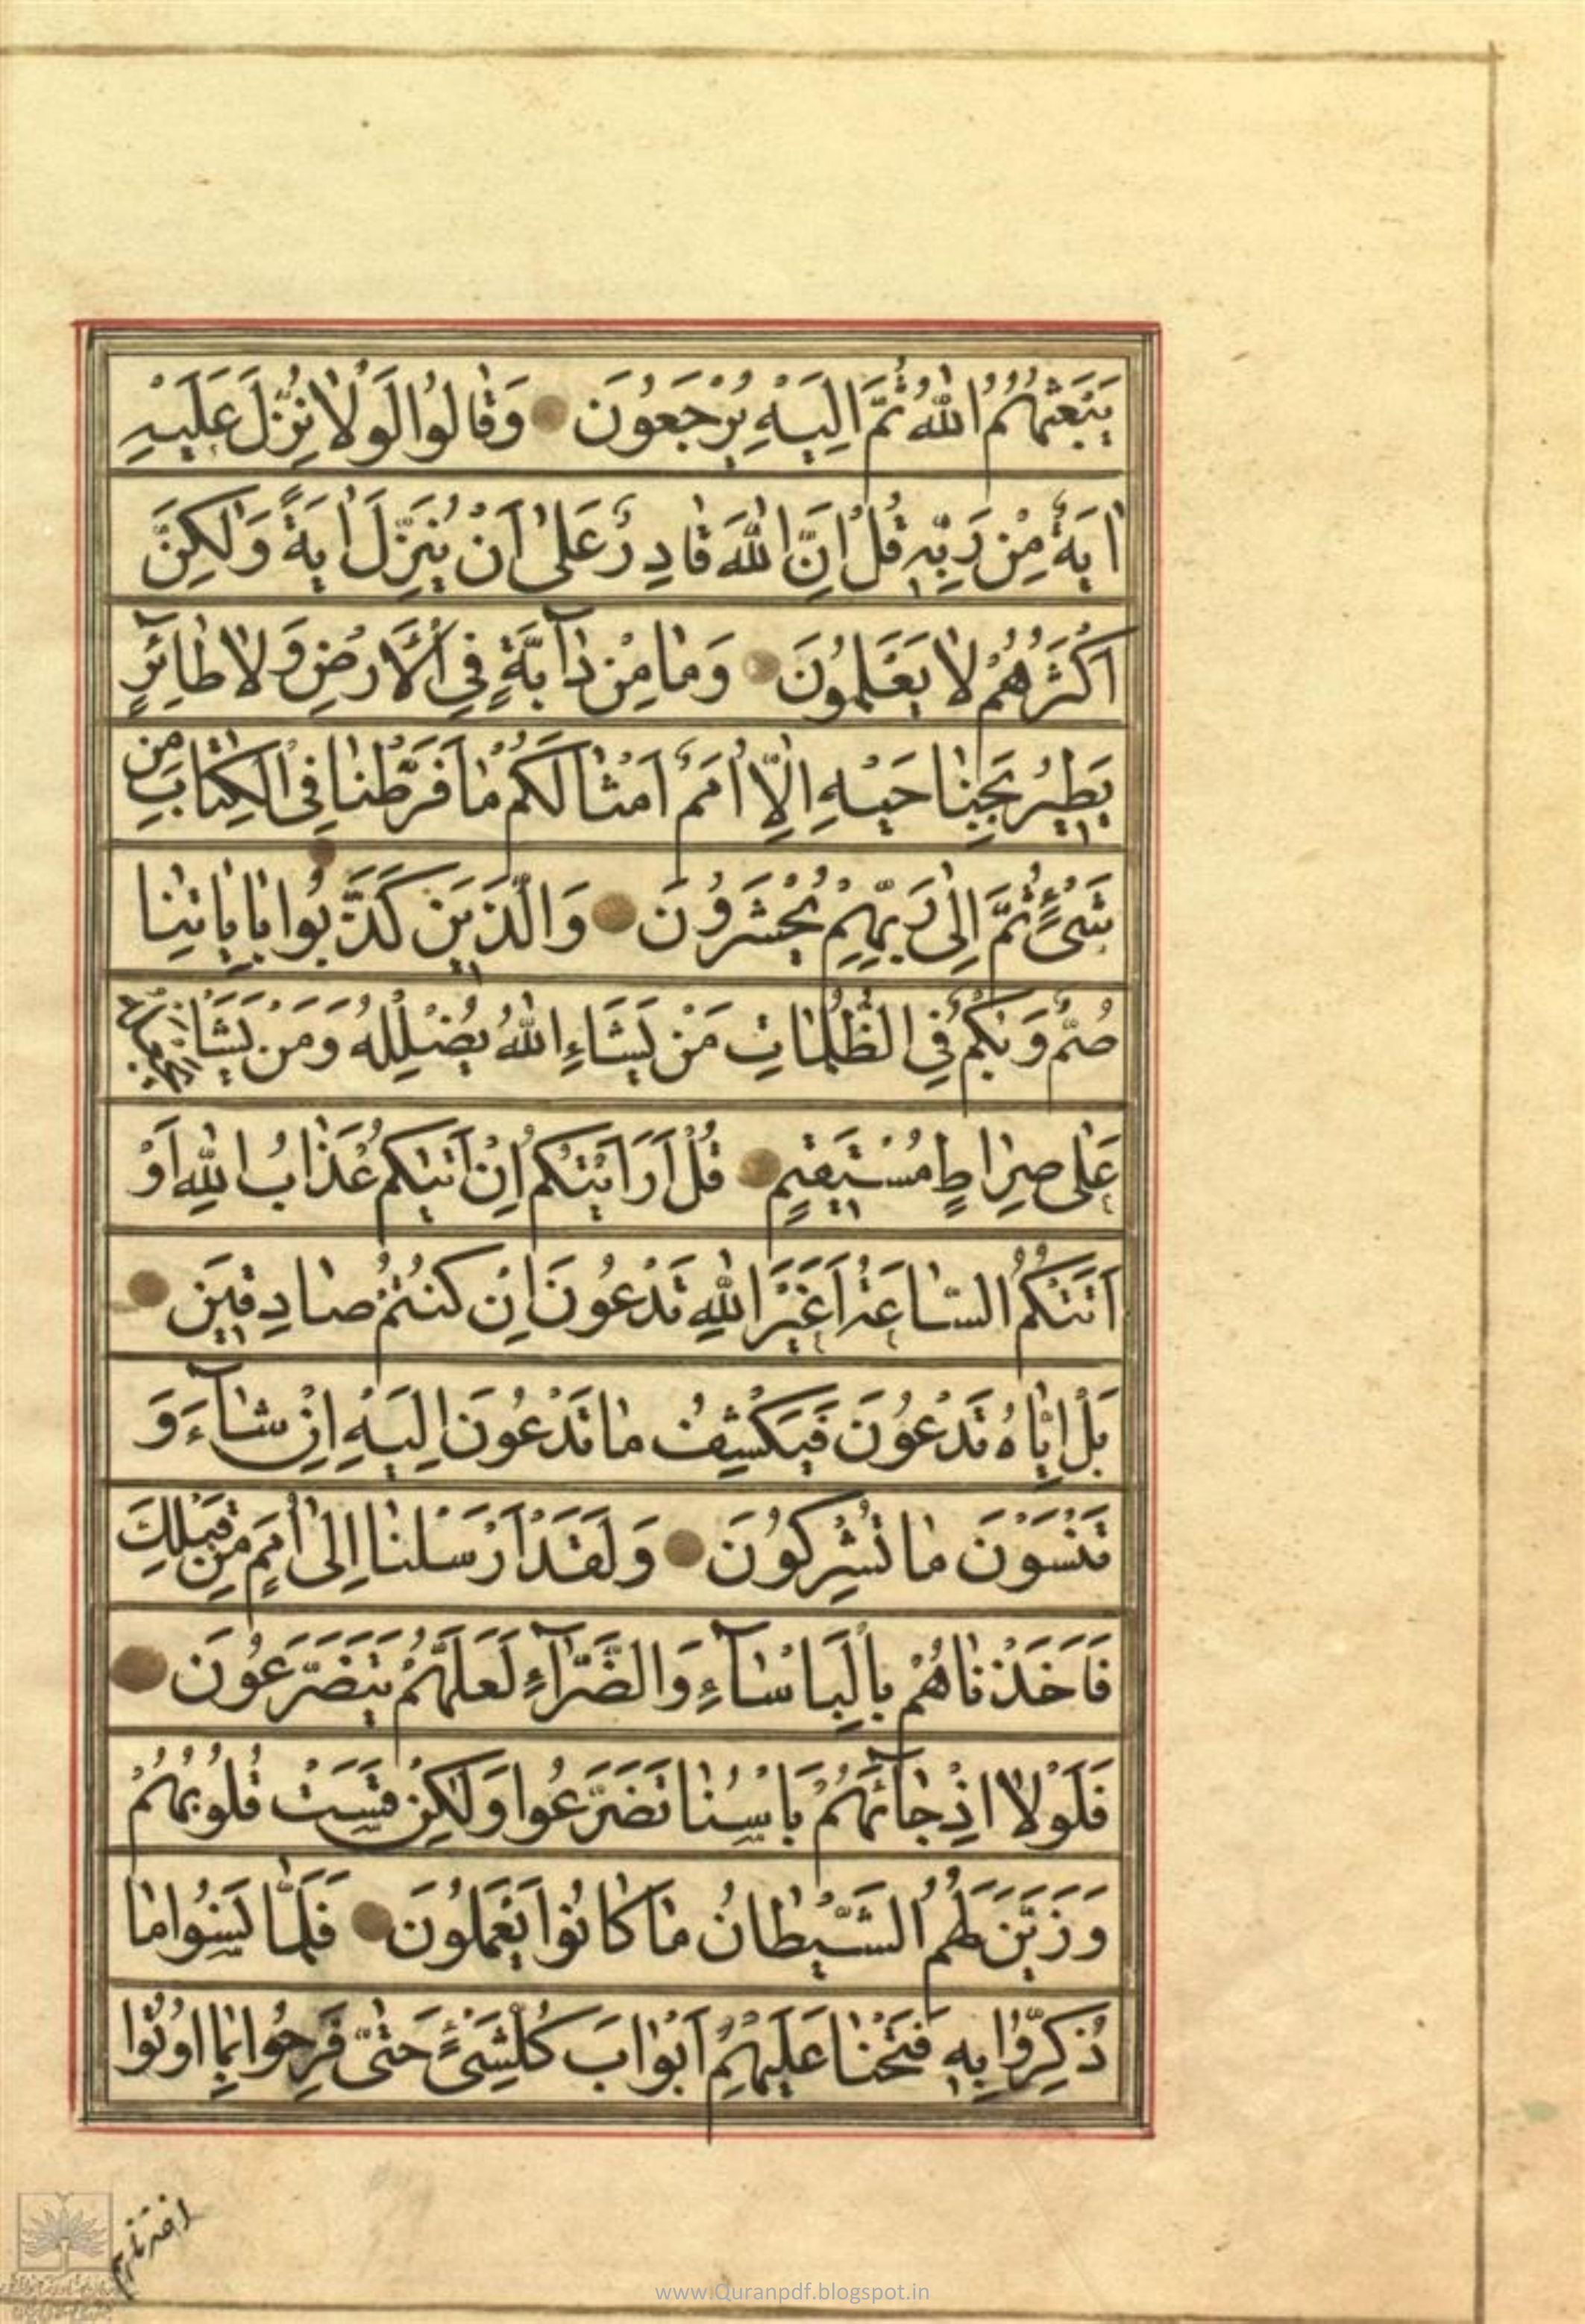 يَبْعَثُهُمُ اللّٰهُ ثُمَّ اِلَيْهِ يُرْجَعُونَ وَقٰالُوا لَوْلٰا نُزِّلَ عَلَيْهِ
اٰيَةٌ مِنْ رَبِّهِ قُلْ اِنَّ اللّٰهَ قٰادِرٌ عَلٰى اَنْ يُنَزِّلَ اٰيَةً وَلٰكِنَّ
اَكْثَرَهُمْ لٰا يَعْلَمُونَ وَمٰا مِنْ دٰآبَّةٍ فِي الْاَرْضِ وَلٰا طٰآئِرٍ
يَطِيرُ بِجَنٰاحَيْهِ اِلّٰا اُمَمٌ اَمْثٰالُكُمْ مٰا فَرَّطْنٰا فِي الْكِتٰابِ مِنْ
شَيْءٍ ثُمَّ اِلٰى رَبِّهِمْ يُحْشَرُونَ وَالَّذِينَ كَذَّبُوا بِاٰيٰاتِنٰا
صُمٌّ وَبُكْمٌ فِي الظُّلُمٰاتِ مَنْ يَشَاءِ اللّٰهُ يُضْلِلْهُ وَمَنْ يَشَأْ يَجْعَلْهُ
عَلٰى صِرٰاطٍ مُسْتَقِيمٍ قُلْ اَرَاَيْتَكُمْ اِنْ اَتٰيكُمْ عَذٰابُ اللّٰهِ اَوْ
اَتَتْكُمُ السّٰاعَةُ اَغَيْرَ اللّٰهِ تَدْعُونَ اِنْ كُنْتُمْ صٰادِقِينَ
بَلْ اِيّٰاهُ تَدْعُونَ فَيَكْشِفُ مٰا تَدْعُونَ اِلَيْهِ اِنْ شٰآءَ وَ
تَنْسَوْنَ مٰا تُشْرِكُونَ وَلَقَدْ اَرْسَلْنٰا اِلٰى اُمَمٍ مِنْ قَبْلِكَ
فَاَخَذْنٰاهُمْ بِالْبَاْسٰآءِ وَالضَّرّٰآءِ لَعَلَّهُمْ يَتَضَرَّعُونَ
فَلَوْلٰا اِذْ جٰآئَهُمْ بَاْسُنٰا تَضَرَّعُوا وَلٰكِنْ قَسَتْ قُلُوبُهُمْ
وَزَيَّنَ لَهُمُ الشَّيْطٰانُ مٰا كٰانُوا يَعْمَلُونَ فَلَمّٰا نَسُوا مٰا
ذُكِّرُوا بِهِ فَتَحْنٰا عَلَيْهِمْ اَبْوٰابَ كُلِّشَيْءٍ حَتّٰى فَرِحُوا بِمٰا اُوتُوا
www.Quranpdf.blogspot.in